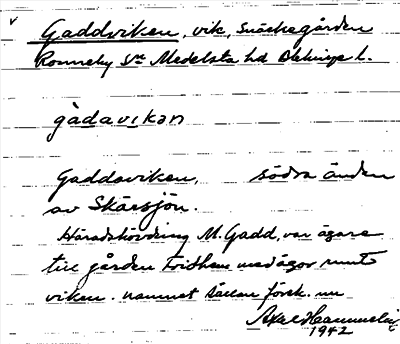 v Gaddviken, vik, Snäckegården
Ronneby sn Medelsta hd Blekinge l.
gàdavıkən
Gaddaviken, södra änden
av Skärsjön.
Häradshövding M. Gadd, var ägare
till gården Fridhem med ägor runt
viken. namnet sällan förek. nu
Axel
1942